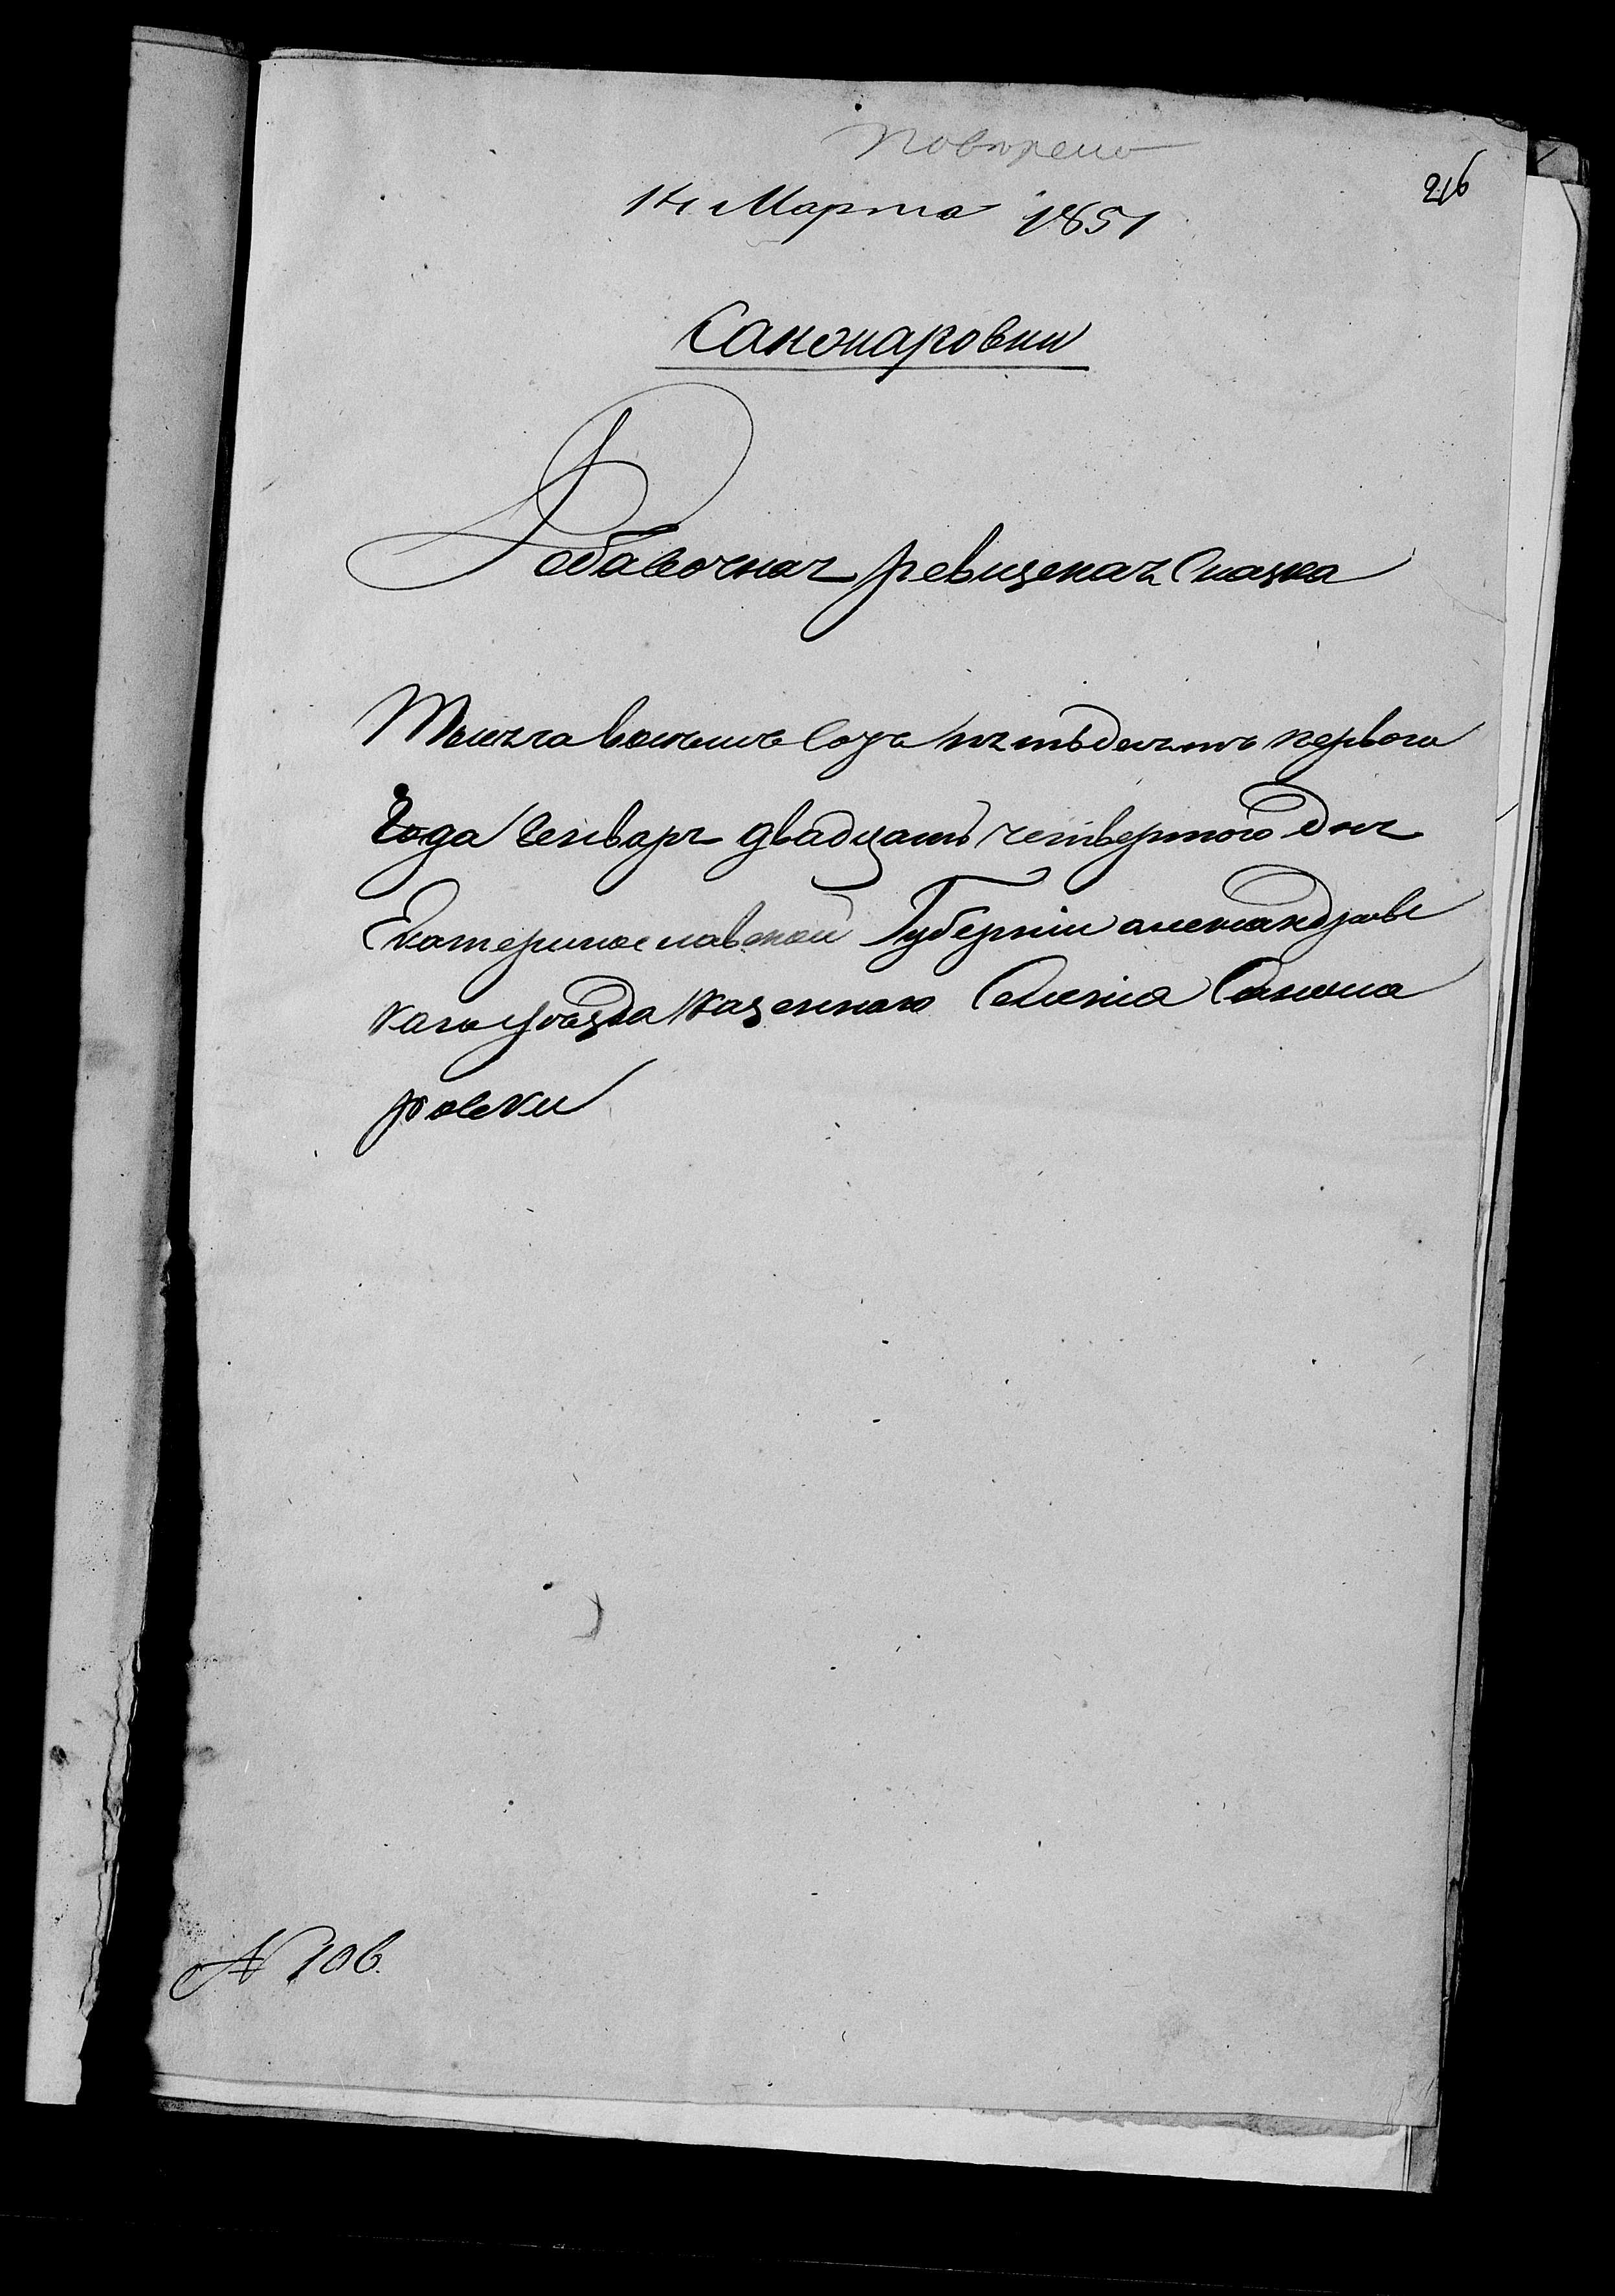 Повѣрено
216
14 Марта 1851
Сакомаровки
Добавочная ревизская Сказка
Тысяча восемъ сотъ пятьдесятъ первого
Года Генваря двадцать четвертого дня
Екатеринославской Губерніи александровс
каго уѣзда казенного Селенія
ровки
№ 106.